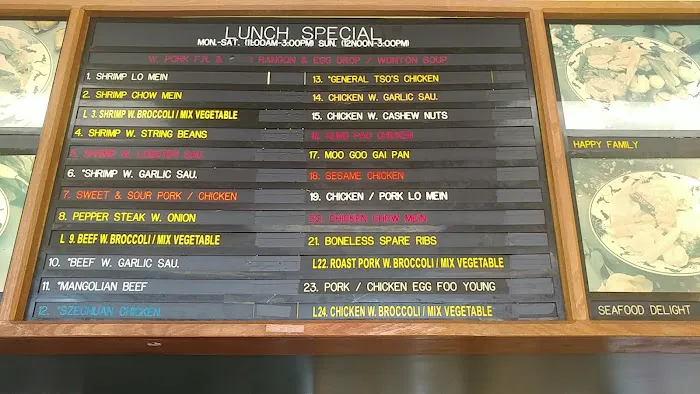 LUNCH SPECIAL
MON.-SAT. (11:00AM-3:00PM) SUN. (12NOON-3:00PM)
W. PORK F.R. & RANGON & EGG DROP / WONTON SOUP
1. SHRIMP LO MEIN
2. SHRIMP CHOW MEIN
L 3. SHRIMP W. BROCCOLI / MIX VEGETABLE
4. SHRIMP W. STRING BEANS
5. SHRIMP W. LOBSTER SAU.
6. *SHRIMP W. GARLIC SAU.
7. SWEET & SOUR PORK / CHICKEN
8. PEPPER STEAK W. ONION
L 9. BEEF W. BROCCOLI / MIX VEGETABLE
10. *BEEF W. GARLIC SAU.
11. *MANGOLIAN BEEF
12. *SZECHUAN CHICKEN
13. *GENERAL TSO'S CHICKEN
14. CHICKEN W. GARLIC SAU.
15. CHICKEN W. CASHEW NUTS
16. KUNG PAO CHICKEN
17. MOO GOO GAI PAN
18. SESAME CHICKEN
19. CHICKEN / PORK LO MEIN
20. CHICKEN CHOW MEIN
21. BONELESS SPARE RIBS
L22. ROAST PORK W. BROCCOLI / MIX VEGETABLE
23. PORK / CHICKEN EGG FOO YOUNG
L24. CHICKEN W. BROCCOLI / MIX VEGETABLE
HAPPY FAMILY
SEAFOOD DELIGHT